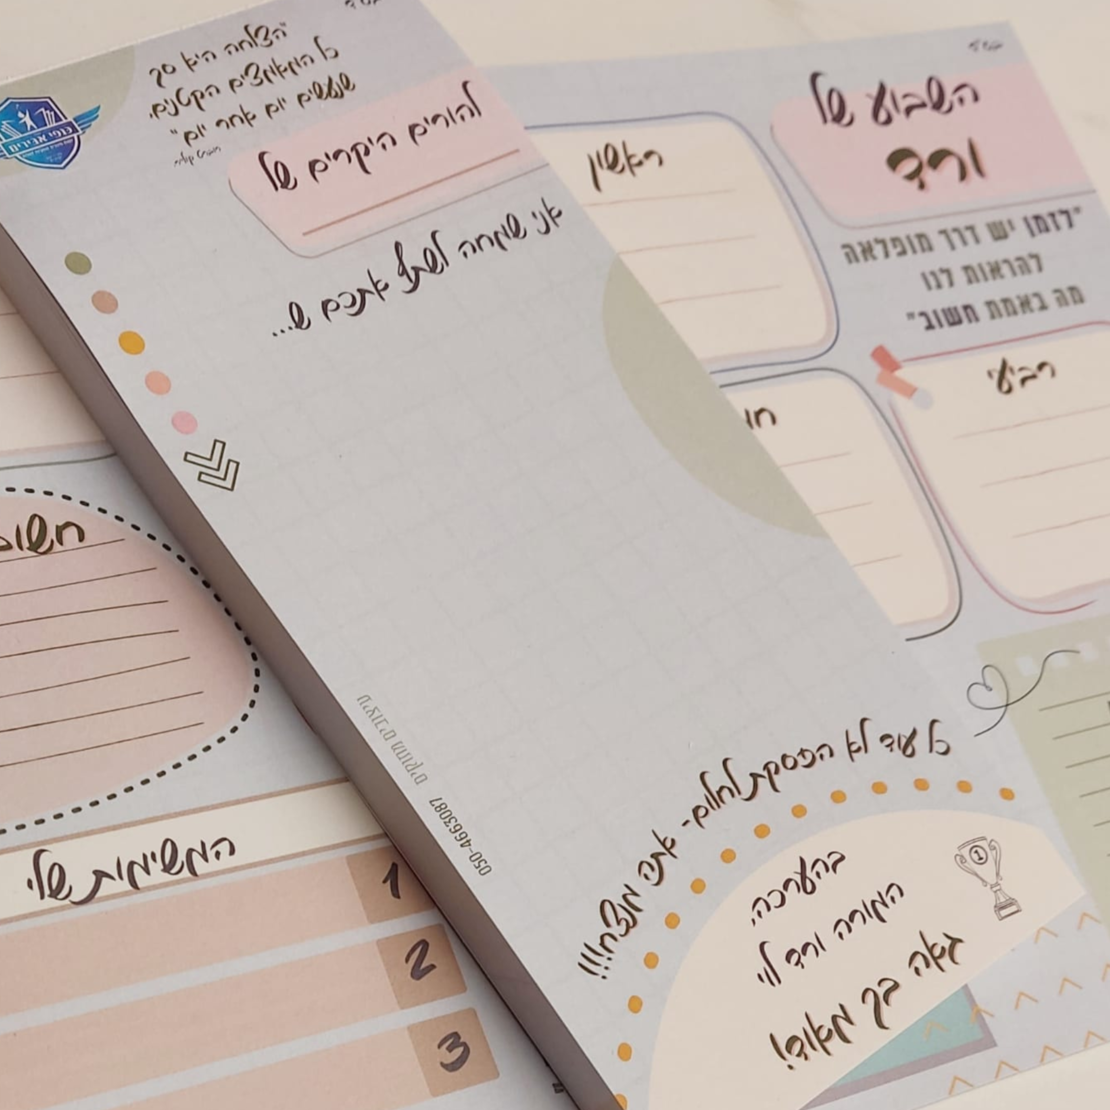 "הצלחה היא סך
כל המאמצים הקטנים,
שעושים יום אחר יום"
להורים היקרים של
אני שמחה לשתף אתכם ש...
כנפי אבירים
עיצובים מתוקים
050-4663087
כל עוד לא הפסקת לחלום- אתה מנצח!!!
בהערכה,
המורה ורד לוי
גאה בך מאוד!
1
בס"ד
השבוע של
ורד
"לזמן יש דרך מופלאה
להראות לנו
מה באמת חשוב"
ראשון
רביעי
המשימות שלי
1
2
3